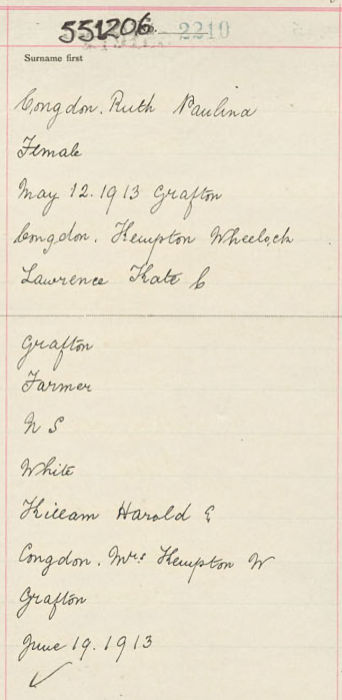 551206. 2210
Surname first
Congdon. Ruth Paulina
Female
May 12. 1913 Grafton
Congdon. Kempton Wheelock
Lawrence Kate C
Grafton
Farmer
N S
White
Killam Harold E
Congdon. Mrs Kempton W
Grafton
June 19. 1913